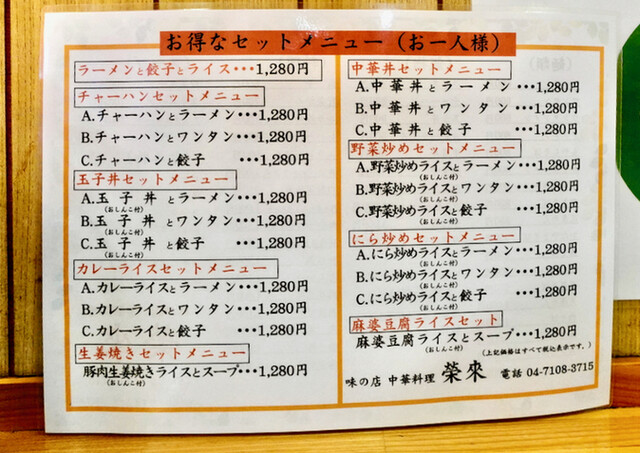 お得なセットメニュー（お一人様）
ラーメンと餃子とライス・・・1,280円
チャーハンセットメニュー
A.チャーハンとラーメン・・・1,280円
B.チャーハンとワンタン・・・1,280円
C.チャーハンと餃子　・・・1,280円
玉子丼セットメニュー
A.玉子丼とラーメン・・・1,280円
(おしんこ付)
B.玉子丼とワンタン・・・1,280円
(おしんこ付)
C.玉子丼と餃子　・・・1,280円
(おしんこ付)
カレーライスセットメニュー
A.カレーライスとラーメン・・・1,280円
B.カレーライスとワンタン・・・1,280円
C.カレーライスと餃子　・・・1,280円
生姜焼きセットメニュー
豚肉生姜焼きライスとスープ・・・1,280円
(おしんこ付)
中華丼セットメニュー
A.中華丼とラーメン・・・1,280円
B.中華丼とワンタン・・・1,280円
C.中華丼と餃子　・・・1,280円
野菜炒めセットメニュー
A.野菜炒めライスとラーメン・・・1,280円
(おしんこ付)
B.野菜炒めライスとワンタン・・・1,280円
(おしんこ付)
C.野菜炒めライスと餃子　・・・1,280円
(おしんこ付)
にら炒めセットメニュー
A.にら炒めライスとラーメン・・・1,280円
(おしんこ付)
B.にら炒めライスとワンタン・・・1,280円
(おしんこ付)
C.にら炒めライスと餃子　・・・1,280円
(おしんこ付)
麻婆豆腐ライスセット
麻婆豆腐ライスとスープ・・・1,280円
(おしんこ付)
(上記価格はすべて税込表示です。)
味の店 中華料理 榮來 電話 04-7108-3715